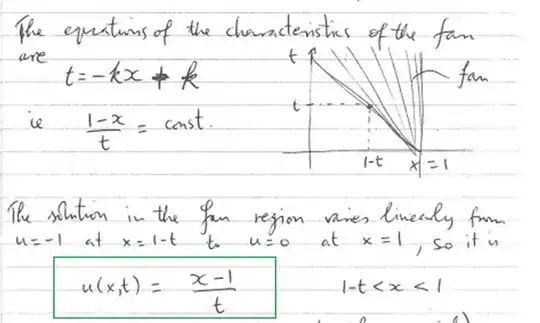 The equations of the characteristics of the fan
are
t = -kx + k
ie 1-x / t = const.
t
t
fan
1-t x = 1
The solution in the fan region varies linearly from
u = -1 at x = 1-t to u = 0 at x = 1, so it is
u(x,t) = x-1 / t 1-t < x < 1